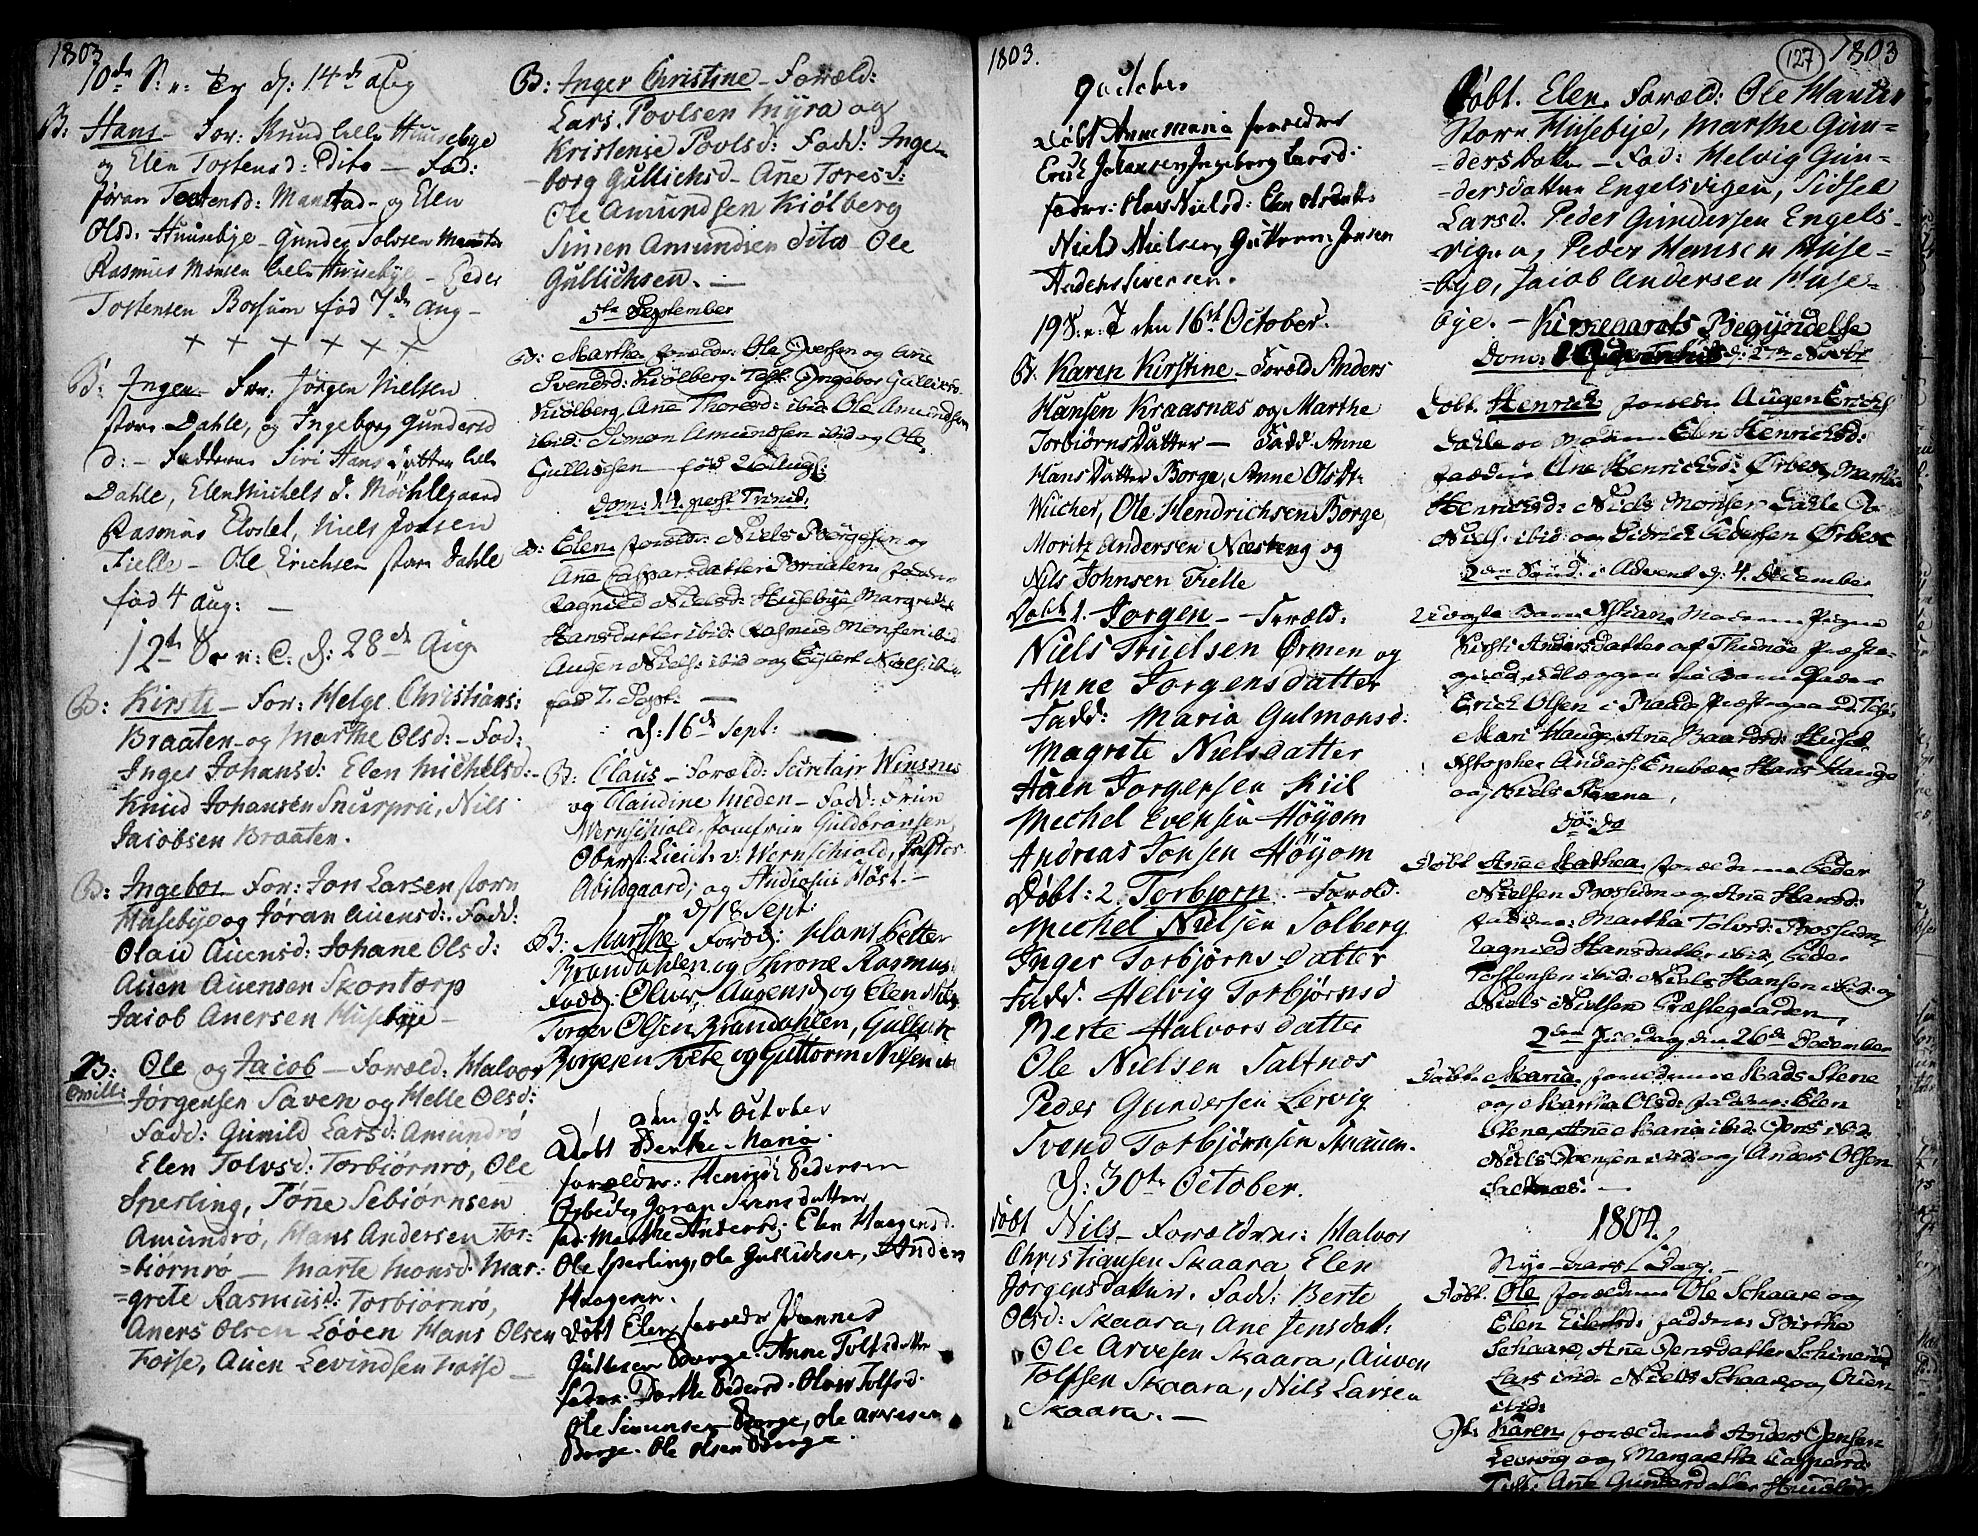 1803
10de S: n: Tr d: 14de Aug
B: Hans - For: Knud lille Huusebye
og Elen Tostensd: Dito - Fad:
Jøran Tostensd: Manstad - og Elen
Olsd: Huusebye - Gunder Tolvsen
Rasmus Monsen lille Huusebye - Peder
Tostensen Borsum fød 7de Aug -
B: Inger For: Jørgen Nielsen
store Dahle, og Ingeborg Gundersd
d: - Faddere Siri Hans Datter lille
Dahle, Elen Michels d. Møchlegaard
Rasmus Klostet, Niels Jonsen
Fielle - Ole Erichsen store Dahle
fød 4 Aug: -
12te S: n: T: d: 28de Aug
B: Kirsti - For: Helge Christians:
Braaten og Marthe Olsd: - Fad:
Inger Johansd: Elen Michelsd: -
Knud Johansen Snurpru, Niels
Jacobsen Braaten.
B: Ingebor - For: Jon Larsen store
Husebye og Jøran Auensd: Fadd:
Olaid Auensd: Johane Olsd:
Auen Auensen Skontorp
Jacob Anersen Husebye -
2 B: Ole og Jacob - Foræld: Halvor
Tvill: Jørgensen Saven og Helle Olsd:
Fadd: Gunild Larsd: Amundrø
Elen Tolvsd: Torbiørnrø, Ole
Sperling, Tønne Sebiørnsen
Amundrø, Hans Andersen Tor-
=biørnrø - Marte Monsd: Mar:
=grete Rasmusd: Torbiørnrø,
Aners Olsen Løøen Hans Olsen
Torse, Auen Levindsen Torse -
B: Inger Christine - Foræld:
Lars Povlsen Myra og
Kristense Povlsd: Fadd: Inge-
-borg Gullichsd - Ane Toresd:
Ole Amundsen Kiølberg
Simen Amundsen dito - Ole
Gullichsen. -
5te September
B: Marthe forældr: Ole Iversen og Ane
Svendsd: Kiølberg. Test: Ingebor Gulliksd
Kiølberg, Ane Thoresd: ibid: Ole Amundsen
ibid: Simon Amundsen ibid og Ole
Gullissen - fød 26 Aug:
Dom: 14 post Trinit:
B: Elen forældr: Niels Børgesen og
Ane Caspersdatter Braaten faddr:
Ragnild Nielsd: Husebye Margrethe
Hansdatter ibid: Rasmus Monsen ibid
Augen Niels: ibid og Eylert Niels: ibid
fød 7. Sept: -
d: 16de Sept:
B: Claus - Foræld: Secretair Winsnes
og Claudine Meden - Fadd: Fruu
Wernschiold, Jomfrue Guldbransen,
Oberst:Lieut: v: Wernschiold, Pastor
Abildgaard, og Studiosus Høst. -
d 18 Sept:
B: Marthe Foræld: Hans Petter
Brandahlen og Throne Rasmus:
Fadd: Oluv Augensd og Elen Nils
Torger Olsen Brandahlen, Gulluk
Borgesen Torte og Guttorm Nielsen
den 9de October
Døbt Berthe Maria.
forældre: Henrich Pedersen
Ørbech, Goran Svensdatter
fad: Marthe Andersd: Elen Haagensd.
Ole Sperling, Ole Gullichsen, Anden
Haagensen.
Døbt Elen, forældre Johannes
Guttersen Borge. Anne Tolfsdatter
faddr: Dorthe Pedersd. Oluv Tolfsd.
Ole Simensen Borge, Ole Arvesen
Borge. Ole Olsen Borge.
1803.
9 october
Døbt Anne Maria forældre
Erich Johansen Ingeborg Larsd:
fadr: Oluv Nielsd: Elen Olsdat:
Niels Nielsen, Guttorm Jensen
Anders Iversen.
19 S. n. T den 16de October.
B. Karen Kirstine - Foræld Anders
Hansen Kraasnæs og Marthe
Torbiørns Datter - Fadd: Anne
Hans Datter Borge, Anne Olsdt:
Wiicher, Ole Hendrichsen Borge,
Moritz Andersen Næsteng og
Nils Johnsen Fielle
Døbt 1. Jorgen - Foræld:
Niels Truelsen Ørmen og
Anne Jorgensdatter
Fadd: Maria Gulmonsd:
Magrete Nielsdatter
Auen Jorgensen Kiil
Mechel Evensen Høyom
Andreas Jonsen Høyom
Døbt: 2. Torbjørn. Foræld:
Mechel Nielsen Solberg
Inger Torbjørns Datter
Fadd: Helvig Torbjørnsd
Berte Halvors datter
Ole Nielsen Saltnos
Peder Gundersen Lervig
Svend Torbjørnsen Skauen.
d: 30te October.
Døbt Nils - Forældrene: Halvor
Christiansen Skaara Elen
Jorgensdatter. Fadd: Berte
Olsd: Skaara, Ane Jensdatt:
Ole Arvesen Skaara, Auven
Tolfsen Skaara, Nils Larsen
Skaara. -
127 1803
Døbt. Elen. Foræld: Ole Hansen
Store Husebye, Marthe Gun=
=dersdatter - Fad: Helvig Gun=
=dersdatter Engelsvigen, Sidsel
Larsd. Peder Gundersen Engels-
vigen, Peder Hemsen Huse=
=bye, Jacob Andersen Huse=
bye. - Kirkeaarets Begyndelse
Dom: 1 Adventus d: 27 Nov:
Døbt. Henrich forældr: Augen Erichs
Dahle og Moderen Elen Henrichsd:
faddr: Ane Henrichsd: Ørbech, Marthe
Henrichsd: Niels Monsen Dahle
Niels: ibid og Didrich Pedersen Ørbech
2den Sønd: i Advent d: 4. December
Uægte Barn Kristian Moderen Pigen
Kirsti Andersdatter af Thunøe Præste-
gield udlagger til Barnefader
Erich Olsen i Raade Præstegaard. Test:
Mari Hauge, Ane Baardsd: Husebye
Kristopher Anders: Enebær, Hans Hauge
og Niels Steene.
do: do
Døbt Ane Mathea forældrene Peder
Nielsen Brossum og Ane Hansd:
faddr: Marthe Tolvsd: Brossum,
Ragnild Hansdatter ibid, Peder
Torstensen ibid: Niels Hansen ibid: og
Niels Nielsen Præstegaarden,
2den Juledag den 26de December
Døbt. Maria forældrene Mads Stene
og Marthe Olsd: faddr: Elen
Stene, Ane Maria ibid: Jens ibid:
Niels Svensen ibid og Anders Olsen
Saltnæs: -
1804.
Nye-Aars Dag. -
Døbt. Ole forældrene Ole Schaare og
Elen Eilersd: faddrene Birthe
Schaare, Ane Jensdatter Schinerød
Lars ibid: Niels Schaare og Ouen
ibid:
Jt: Karen forældrene Anders Jensen
Lervig og Margarethe Caspersd:
Test: Ane Gundersdatter Husebye